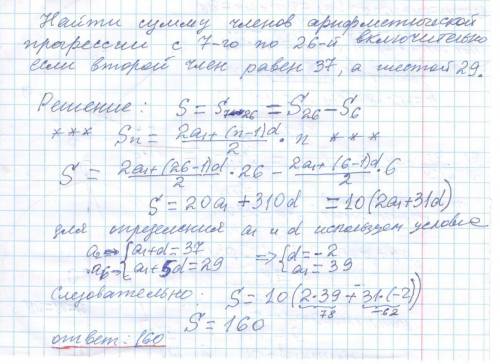 Найти сумму членов арифметической
прогрессии с 7-го по 26-й включительно
если второй член равен 37, а шестой 29.
Решение: S = S₇₋₂₆ = S₂₆ - S₆
*** Sn = (2a₁ + (n-1)d)/2 · n ***
S = (2a₁ + (26-1)d)/2 · 26 - (2a₁ + (6-1)d)/2 · 6
S = 20a₁ + 310d = 10(2a₁ + 31d)
для определения a₁ и d используем условие
a₂ → { a₁ + d = 37 ⇒ { d = -2
a₆ → { a₁ + 5d = 29 { a₁ = 39
Следовательно: S = 10(2·39 + 31·(-2))
78 -62
S = 160
ответ: 160